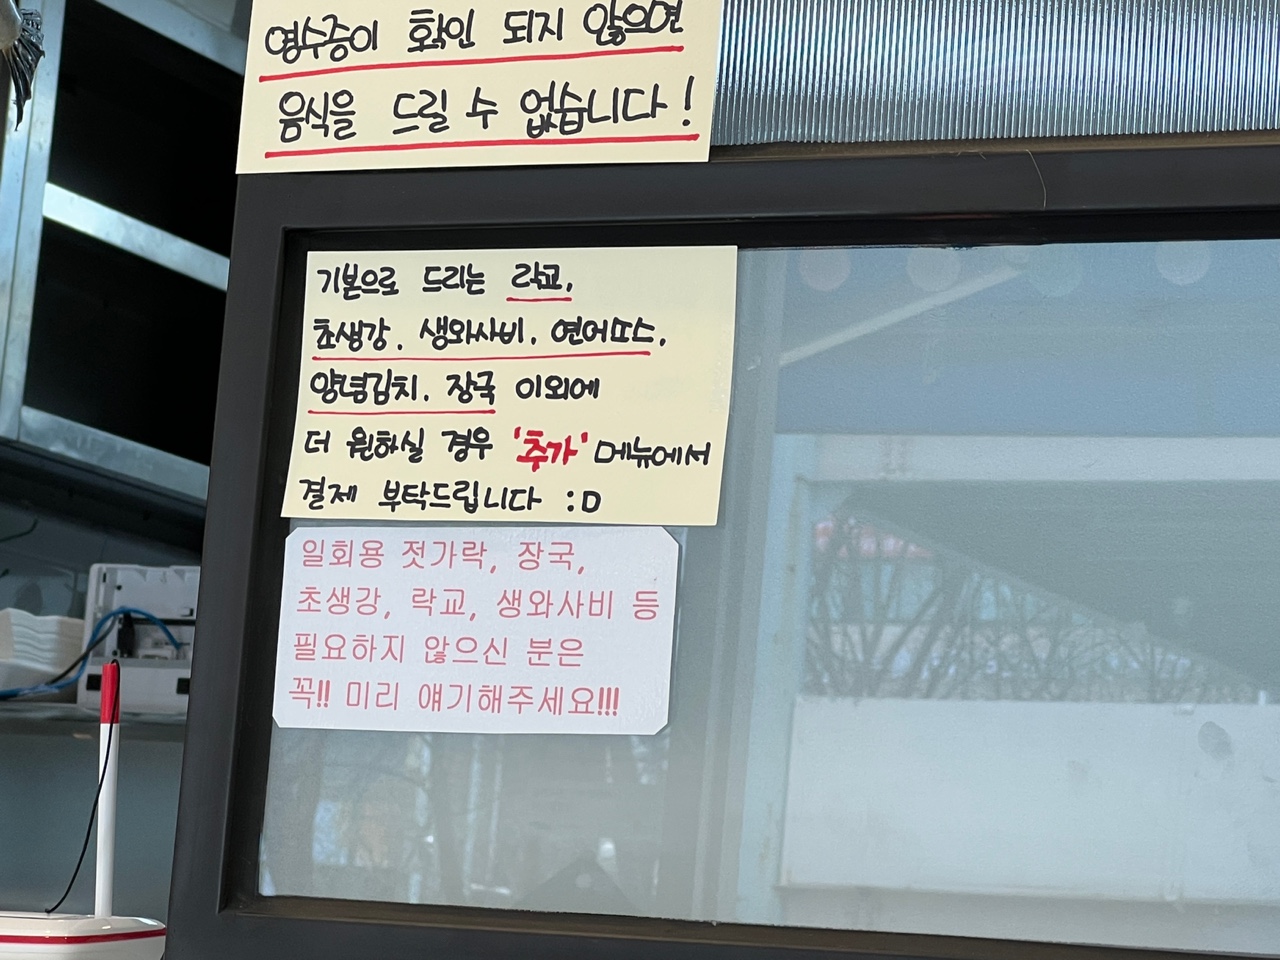 영수증이 확인 되지 않으면
음식을 드릴 수 없습니다!
기본으로 드리는 락교,
초생강. 생와사비. 연어쏘스.
양념김치. 장국 이외에
더 원하실 경우 '추가' 메뉴에서
결제 부탁드립니다 :D
일회용 젓가락, 장국,
초생강, 락교, 생와사비 등
필요하지 않으신 분은
꼭!! 미리 얘기해주세요!!!